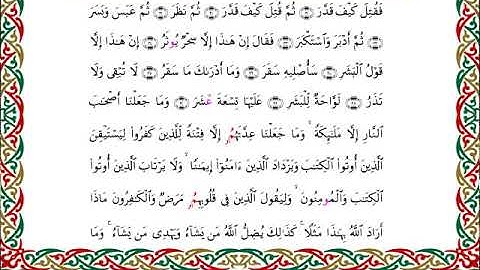 فَقُتِلَ كَيْفَ قَدَّرَ ۝ ثُمَّ قُتِلَ كَيْفَ قَدَّرَ ۝ ثُمَّ نَظَرَ ۝ ثُمَّ عَبَسَ وَبَسَرَ
۝ ثُمَّ أَدْبَرَ وَٱسْتَكْبَرَ ۝ فَقَالَ إِنْ هَـٰذَآ إِلَّا سِحْرٌ يُوثَرُ ۝ إِنْ هَـٰذَآ إِلَّا
قَوْلُ ٱلْبَشَرِ ۝ سَأُصْلِيهِ سَقَرَ ۝ وَمَآ أَدْرَىٰكَ مَا سَقَرُ ۝ لَا تُبْقِى وَلَا
تَذَرُ ۝ لَوَّاحَةٌ لِّلْبَشَرِ ۝ عَلَيْهَا تِسْعَةَ عْشَرَ ۝ وَمَا جَعَلْنَآ أَصْحَـٰبَ
ٱلنَّارِ إِلَّا مَلَـٰٓئِكَةً ۙ وَمَا جَعَلْنَا عِدَّتَهُمُۥٓ إِلَّا فِتْنَةً لِّلَّذِينَ كَفَرُوا۟ لِيَسْتَيْقِنَ
ٱلَّذِينَ أُوتُوا۟ ٱلْكِتَـٰبَ وَيَزْدَادَ ٱلَّذِينَ ءَامَنُوٓا۟ إِيمَـٰنًا ۙ وَلَا يَرْتَابَ ٱلَّذِينَ أُوتُوا۟
ٱلْكِتَـٰبَ وَٱلْمُومِنُونَ ۙ وَلِيَقُولَ ٱلَّذِينَ فِى قُلُوبِهِمُۥ مَرَضٌ وَٱلْكَـٰفِرُونَ مَاذَآ
أَرَادَ ٱللَّهُ بِهَـٰذَا مَثَلًا ۚ كَذَٰلِكَ يُضِلُّ ٱللَّهُ مَن يَشَآءُ وَيَهْدِى مَن يَشَآءُ ۚ وَمَا